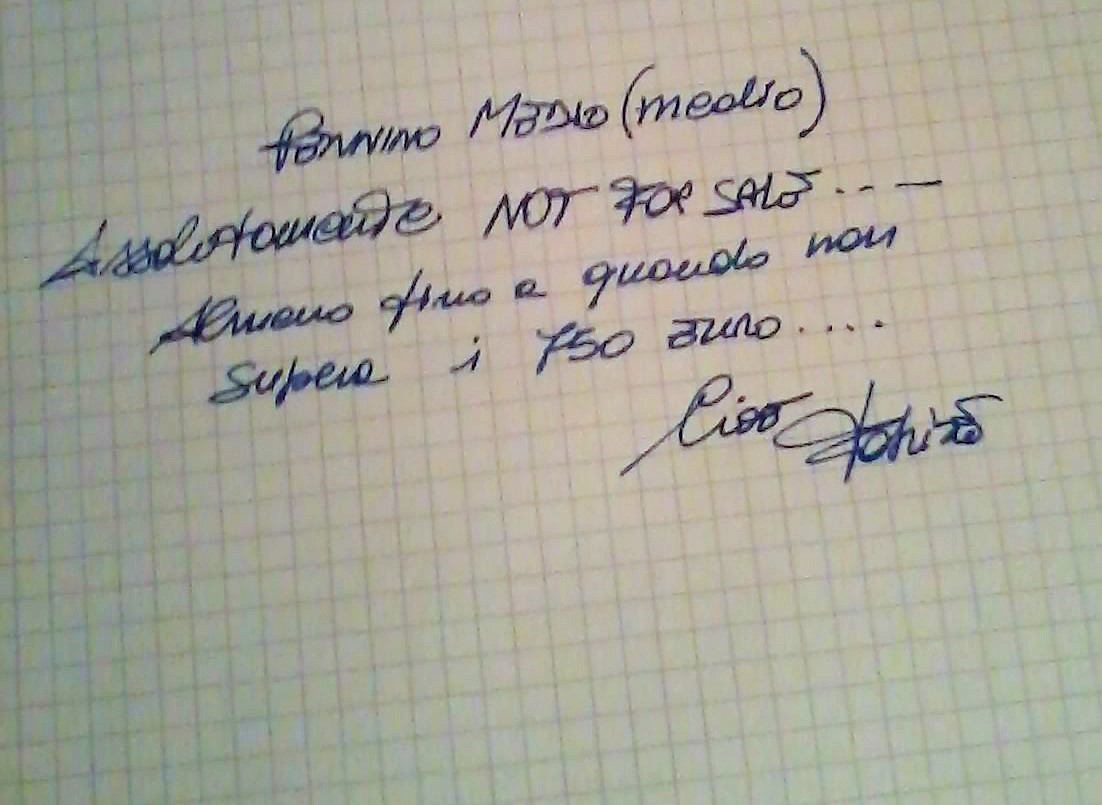 Pennino Medio (medio)
Assolutamente NOT FOR SALE ... —
Almeno fino a quando non
supera i 750 euro ....
Ciao